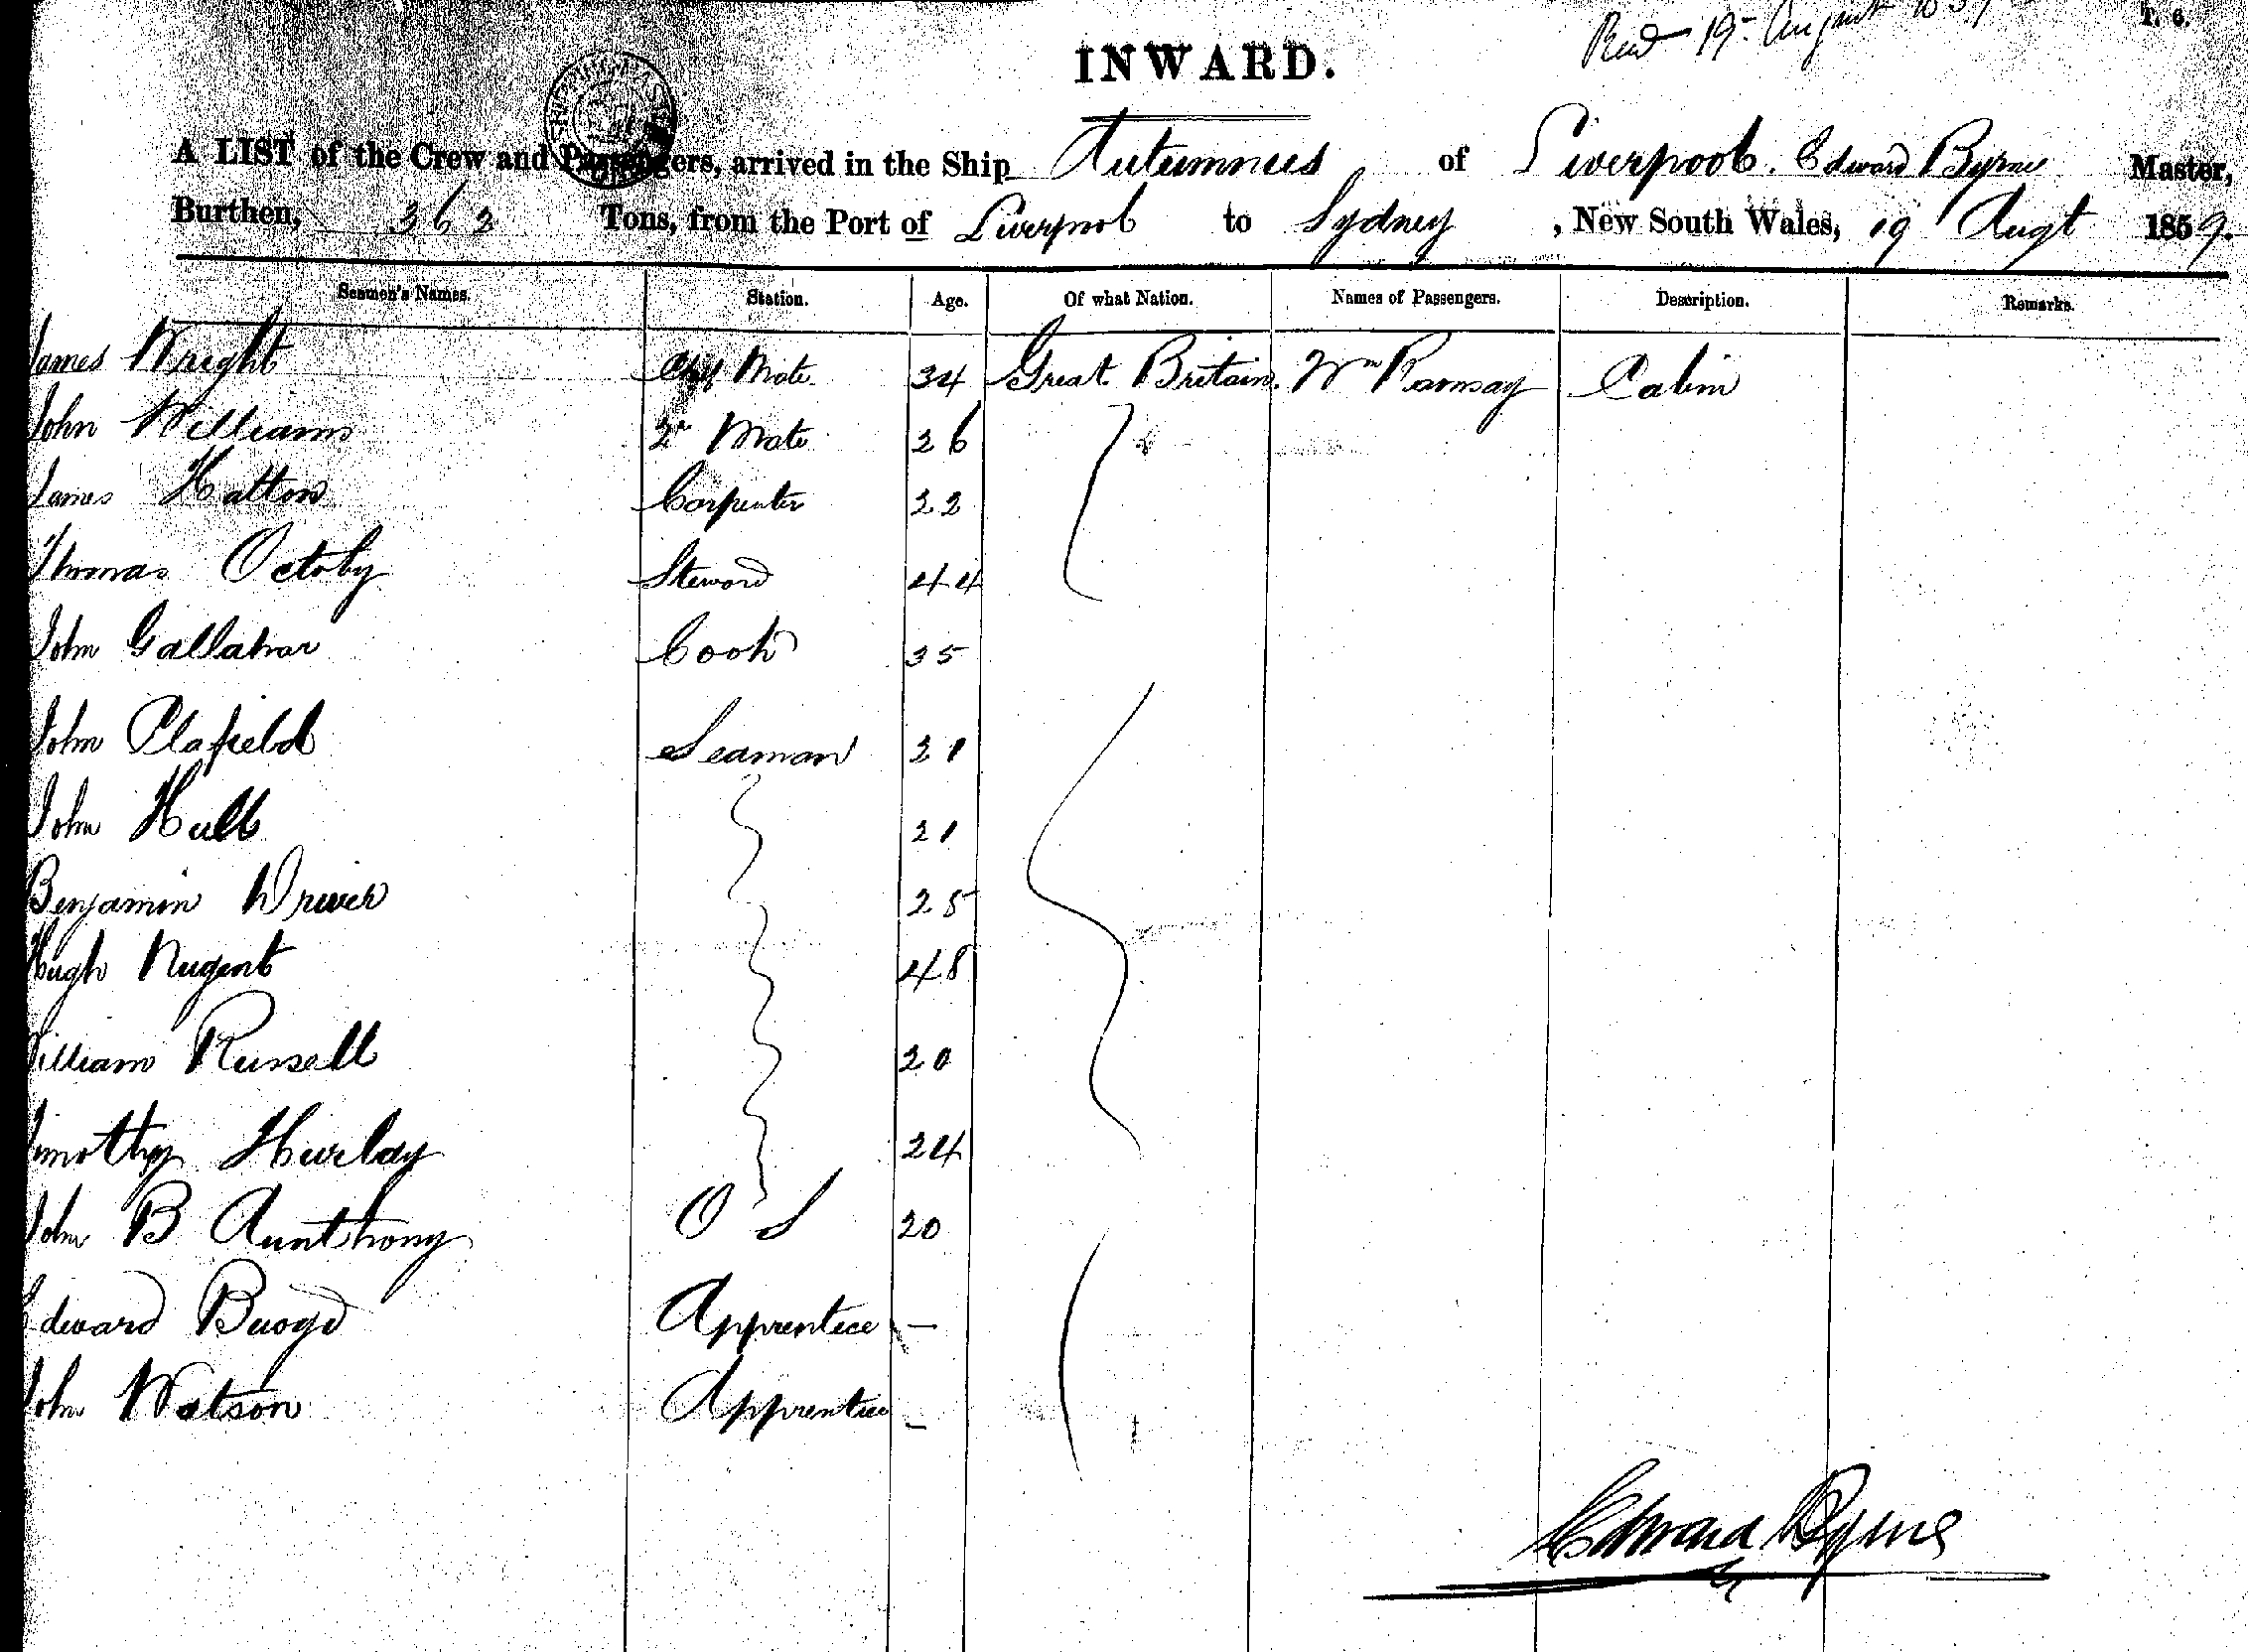 Recd 19 August 1859
T. 6.
INWARD.
A LIST of the Crew and Passengers, arrived in the Ship Autumnus of Liverpool. Edward Byrne Master,
Burthen, 362 Tons, from the Port of Liverpool to Sydney, New South Wales, 19 Augt 1859.
Seamen's Names. Station. Age. Of what Nation. Names of Passengers. Description. Remarks.
James Wright Chief Mate 34 Great Britain. Wm Ramsay Cabin
John Williams 2n Mate 26
James Hatton Carpenter 22
Thomas Octoby Steward 44
John Gallahar Cook 35
John Clafield Seaman 21
John Hull 21
Benjamin Driver 25
Hugh Nugent 48
William Russell 20
Timothy Hurlay 24
John B Aunthony O S 20
Edward Buoyd Apprentice —
John Watson Apprentice —
Edward Byrne